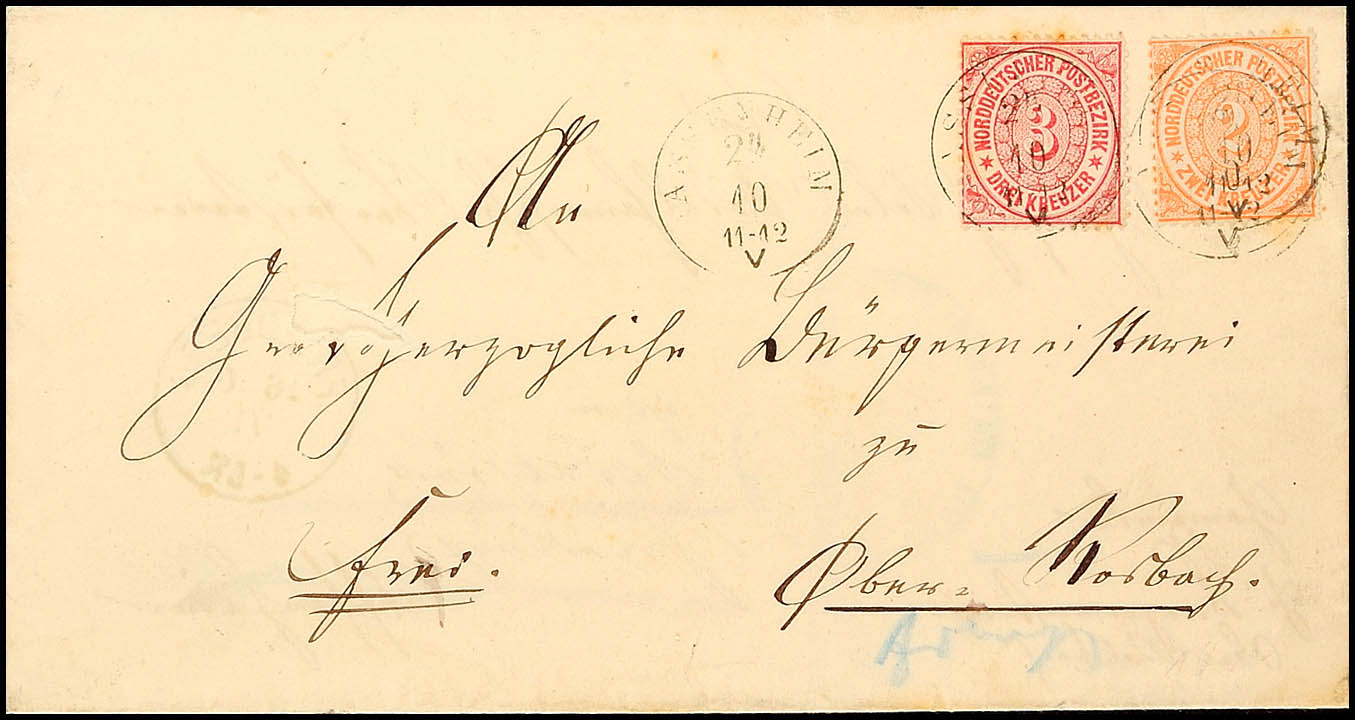 NORDDEUTSCHER POSTBEZIRK
3
DREI KREUZER
NORDDEUTSCHER POSTBEZIRK
2
ZWEI KREUZER
ASSENHEIM
24
10
11-12
V
An
Großherzogliche Bürgermeisterei
zu
Frei.
Ober-Rosbach.